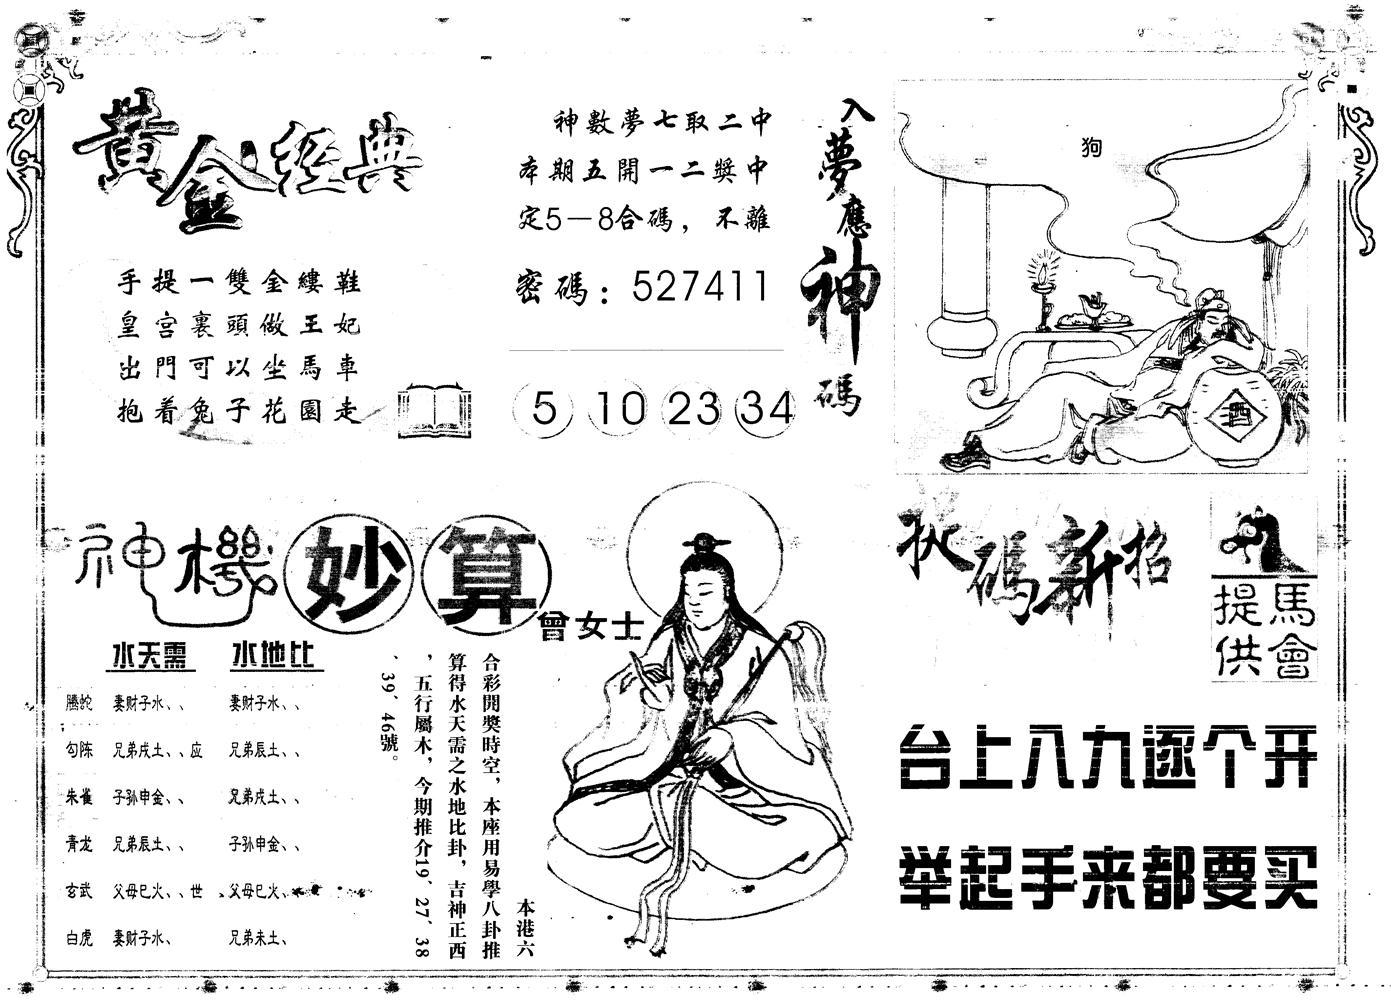 黃金經典
手提一雙金縷鞋
皇宮裏頭做王妃
出門可以坐馬車
抱着兔子花園走
神數夢七取二中
本期五開一二獎中
定5－8合碼，不離
密碼：527411
5 10 23 34
入夢應神碼
狗
酒
神機妙算
曾女士
水天需 水地比
騰蛇 妻财子水、、 妻财子水、、
勾陈 兄弟戌土、、应 兄弟辰土、、
朱雀 子孙申金、、 兄弟戌土、、
青龙 兄弟辰土、、 子孙申金、、
玄武 父母巳火、、世 父母巳火、
白虎 妻财子水、 兄弟未土、
本港六
合彩開獎時空，本座用易學八卦推
算得水天需之水地比卦，吉神正西
，五行屬木，今期推介19、27、38
、39、46號。
碼新招
馬會
提供
台上八九逐个开
举起手来都要买